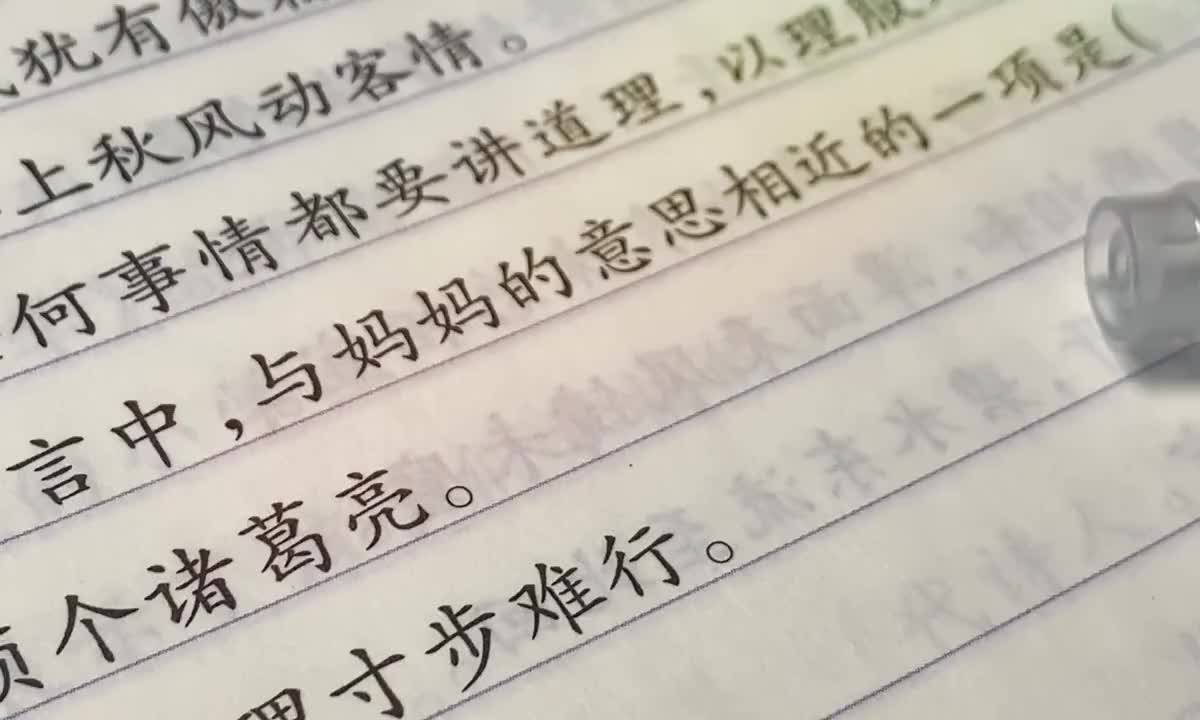 犹有傲
上秋风动客情。
何事情都要讲道理,以理服
言中,与妈妈的意思相近的一项是(
个诸葛亮。
理寸步难行。